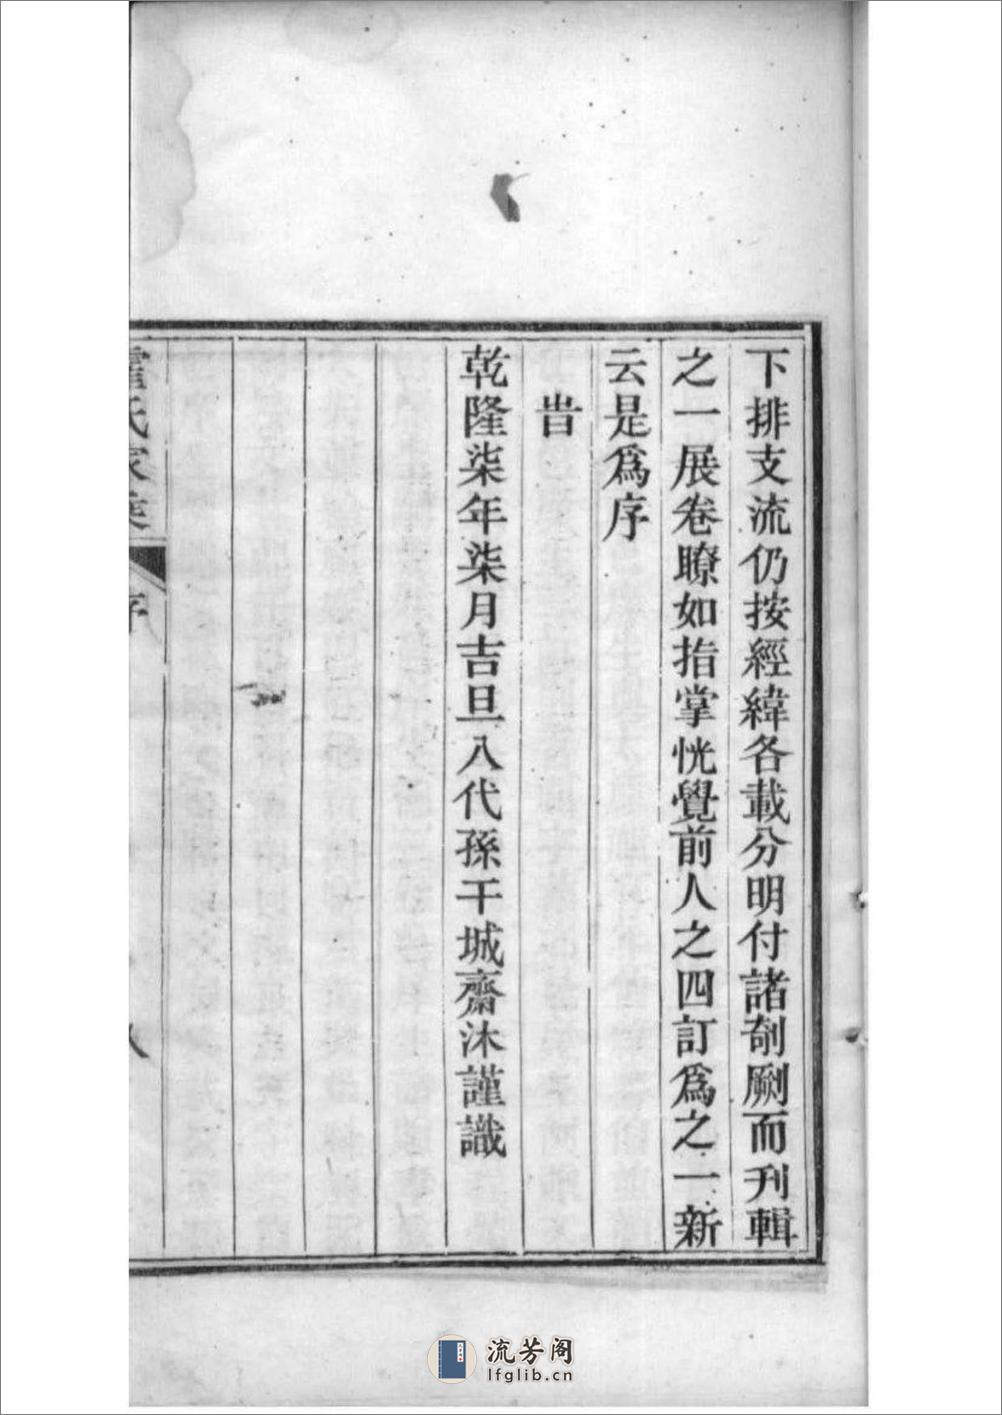 下排支流仍按經緯各載分明付諸剞劂而刊輯
之一展卷瞭如指掌恍覺前人之四訂爲之一新
云是爲序
旹
乾隆柒年柒月吉旦八代孫干城齋沐謹識
霍氏家乘
序
八
流芳阁
lfglib.cn